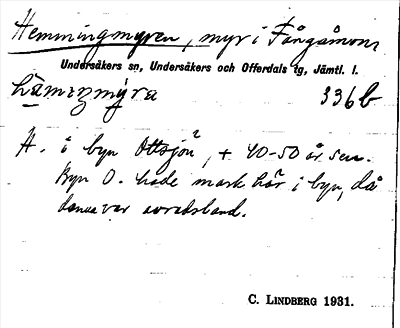 Hemmingmyren, myr i Fångåmons
Undersåkers sn, Undersåkers och Offerdals tg, Jämtl. l.
hämiŋmýra 336b
H. i byn Ottsjön, + 40-50 år sen.
Byn O. hade mark här i byn, då
denna var avradsland.
C. LINDBERG 1931.